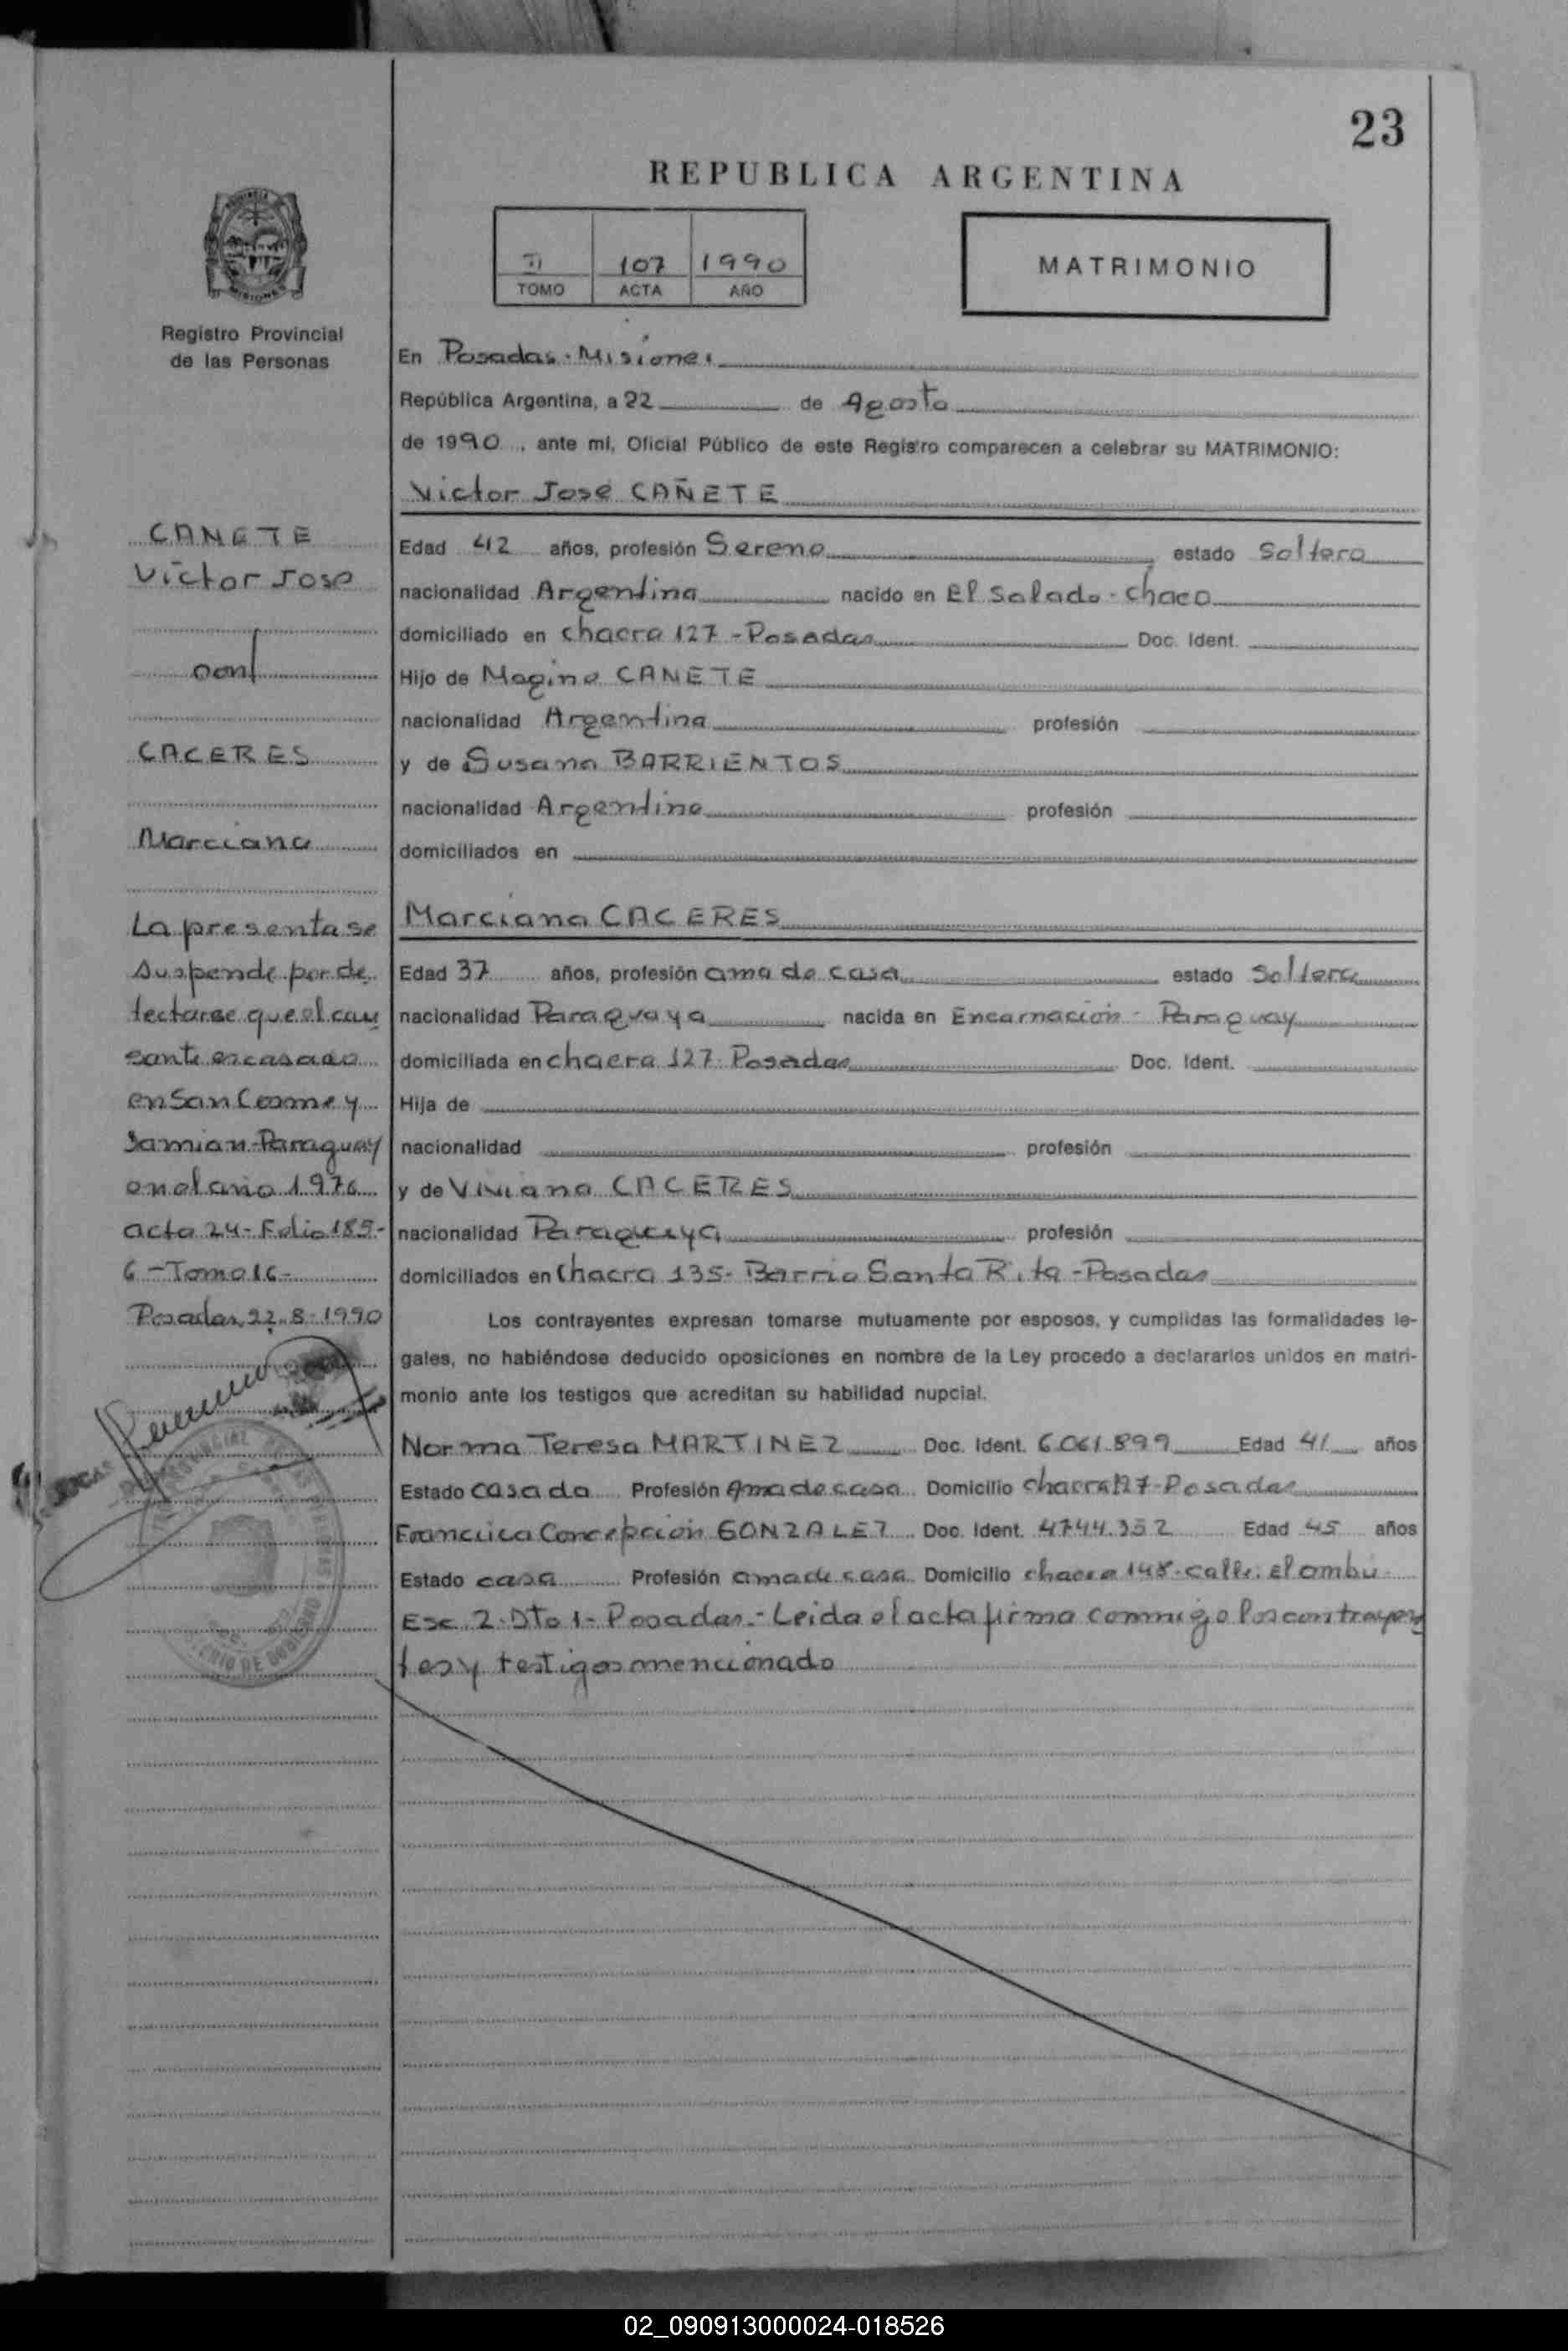 23
REPUBLICA ARGENTINA
107 1990
TOMO ACTA AÑO
MATRIMONIO
Registro Provincial
de las Personas
En Posadas - Misiones
República Argentina, a 22 de Agosto
de 1990, ante mí, Oficial Público de este Registro comparecen a celebrar su MATRIMONIO:
Victor José CAÑETE
Edad 42 años, profesión Sereno estado Soltero
nacionalidad Argentina nacido en El Salado - Chaco
domiciliado en chacra 127 - Posadas Doc. Ident.
Hijo de Magino CANETE
nacionalidad Argentina profesión
y de Susana BARRIENTOS
nacionalidad Argentina profesión
domiciliados en
Marciana CACERES
Edad 37 años, profesión ama de casa estado Soltera
nacionalidad Paraguaya nacida en Encarnación - Paraguay
domiciliada en chacra 127 Posadas Doc. Ident.
Hija de
nacionalidad profesión
y de Viviana CACERES
nacionalidad Paraguaya profesión
domiciliados en Chacra 135 - Barrio Santa Rita - Posadas
Los contrayentes expresan tomarse mutuamente por esposos, y cumplidas las formalidades le-
gales, no habiéndose deducido oposiciones en nombre de la Ley procedo a declararlos unidos en matri-
monio ante los testigos que acreditan su habilidad nupcial.
Norma Teresa MARTINEZ Doc. Ident. 6.061.899 Edad 41 años
Estado casada Profesión Ama de casa Domicilio chacra 127 - Posadas
Francisca Concepción GONZALEZ Doc. Ident. 4744.352 Edad 45 años
Estado casa Profesión ama de casa Domicilio chacra 148 - calle: El ombu
Esc. 2 - Dto 1 - Posadas. - Leida el acta firma conmigo los contrayen
tes y testigos mencionado
CANETE
Victor Jose
con
CACERES
Marciana
La presenta se
suspende por de
tectarse que el cau
sante es casado
en San Cosme y
Damian - Paraguay
en el año 1976
acta 24 - Folio 185 -
6 - Tomo 16 -
Posadas, 22-8-1990
02_090913000024-018526